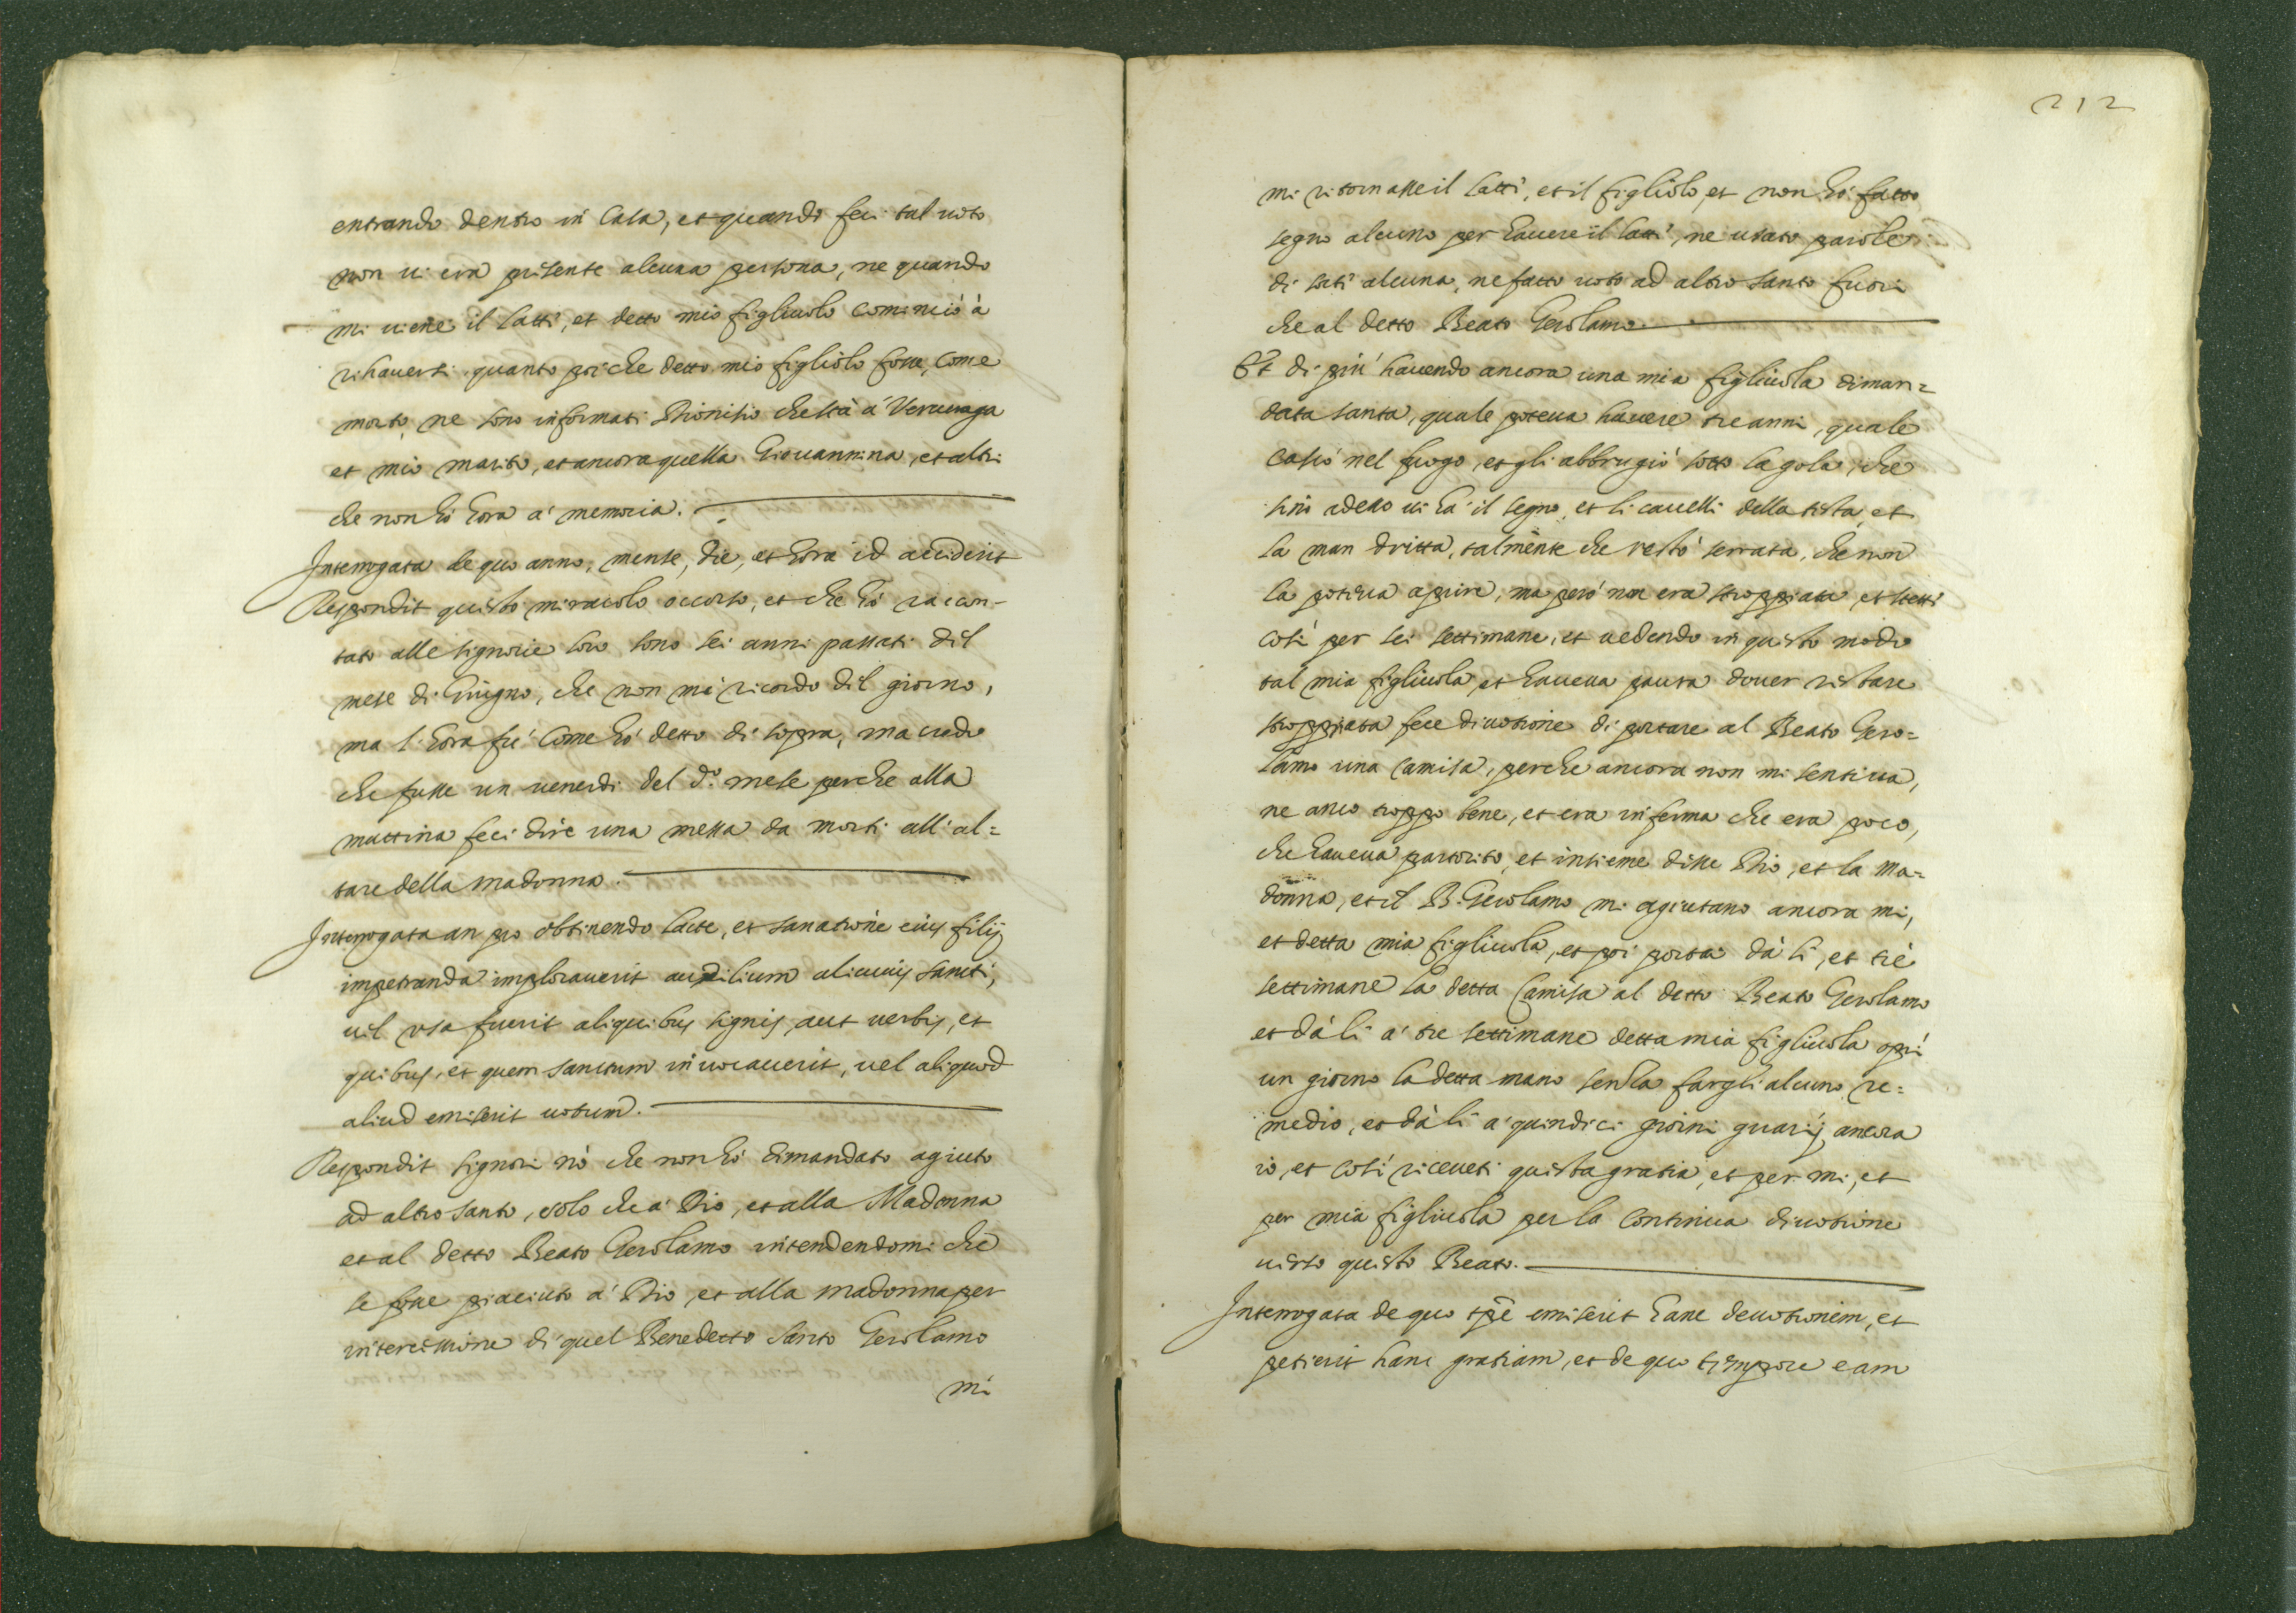 entrando dentro in Casa, et quando feci tal voto
non vi era presente alcuna persona, ne quando
mi viene il latti, et detto mio figliuolo cominciò à
rihaversi. quanto poi che detto mio figliolo fosse, come
morto, ne sono informati Dionisio che stà à Vercuraga
et mio marito, et ancora quella Giovannina, et altri
che non hò hora a' memoria.
Interrogata de quo anno, mense, die, et hora id acciderit
Respondit questo miracolo occorso, et che hò raccon-
tato alle signorie loro sono sei anni passati dil
mese di Giugno, che non mi ricordo dil giorno,
ma l'hora fù come hò detto di sopra, ma credo
che fusse un venerdi del d.º mese perche alla
mattina feci dire una messa da morti all'al=
tare della madonna.
Interrogata an pro obtinendo lacte, et sanatione eius filij
impetranda imploraverit auxilium alicuius sancti,
vel usa fuerit aliquibus signis, aut verbis, et
quibus, et quem sanctum invocaverit, vel aliquod
aliud emiserit votum.
Respondit signori nò che non hò dimandato agiuto
ad altro santo, solo che a' Dio, et alla Madonna
et al detto Beato Gerolamo intendendomi che
se fosse piaciuto a' Dio, et alla madonna per
intercessione di quel Benedetto Santo Gerolamo
mi
212
mi ritornasse il latti, et il figliolo, et non hò fatto
segno alcuno per havere il latti, ne usato parole
di sorti alcuna, ne fatto voto ad altro santo fuori
che al detto Beato Gerolamo.
Et di più havendo ancora una mia figliuola diman=
data santa, quale poteva havere tre anni, quale
cascò nel fuogo, et gli abbrugiò sotto la gola, che
sino adesso vi hà il segno, et li cavelli della testa, et
la man dritta, talmente che restò serrata, che non
la poteva aprire, ma però non era stroppiata, et stetti
così per sei settimane, et vedendo in questo modo
tal mia figliuola, et haveva paura dover restare
stroppiata fece divotione di portare al Beato Gero=
lamo una camisa, perche ancora non mi sentiva,
ne anco troppo bene, et era inferma che era poco,
che haveva partorito, et insieme disse Dio, et la Ma=
donna, et il B. Gerolamo mi agiutano ancora mi,
et detta mia figliuola, et poi portai dà li, et trè
settimane la detta camisa al detto Beato Gerolamo
et dà li a' tre settimane detta mia figliuola aprì
un giorno la detta mano senza fargli alcuno re=
medio, et dà li a' quindici giorni guarij ancora
io, et così riceveti questa gratia, et per mi, et
per mia figliuola per la continua divotione
verso questo Beato.
Interrogata de quo tpē emiserit hanc devotionem, et
petierit hanc gratiam, et de quo tempore eam